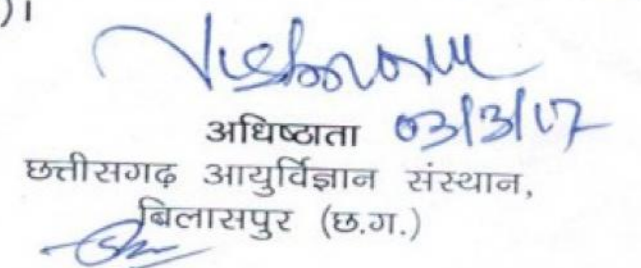 )।
अधिष्ठाता 03/3/17
छत्तीसगढ़ आयुर्विज्ञान संस्थान,
बिलासपुर (छ.ग.)